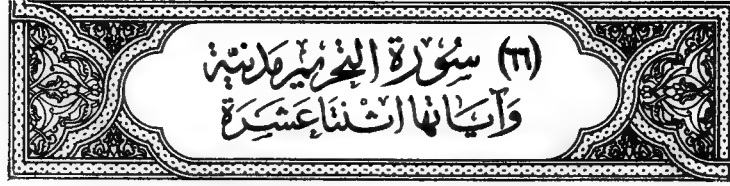 (٦٦) سُورَة التحريم مَدنيَّة
وَآيَاتها اثنتَا عَشرَة